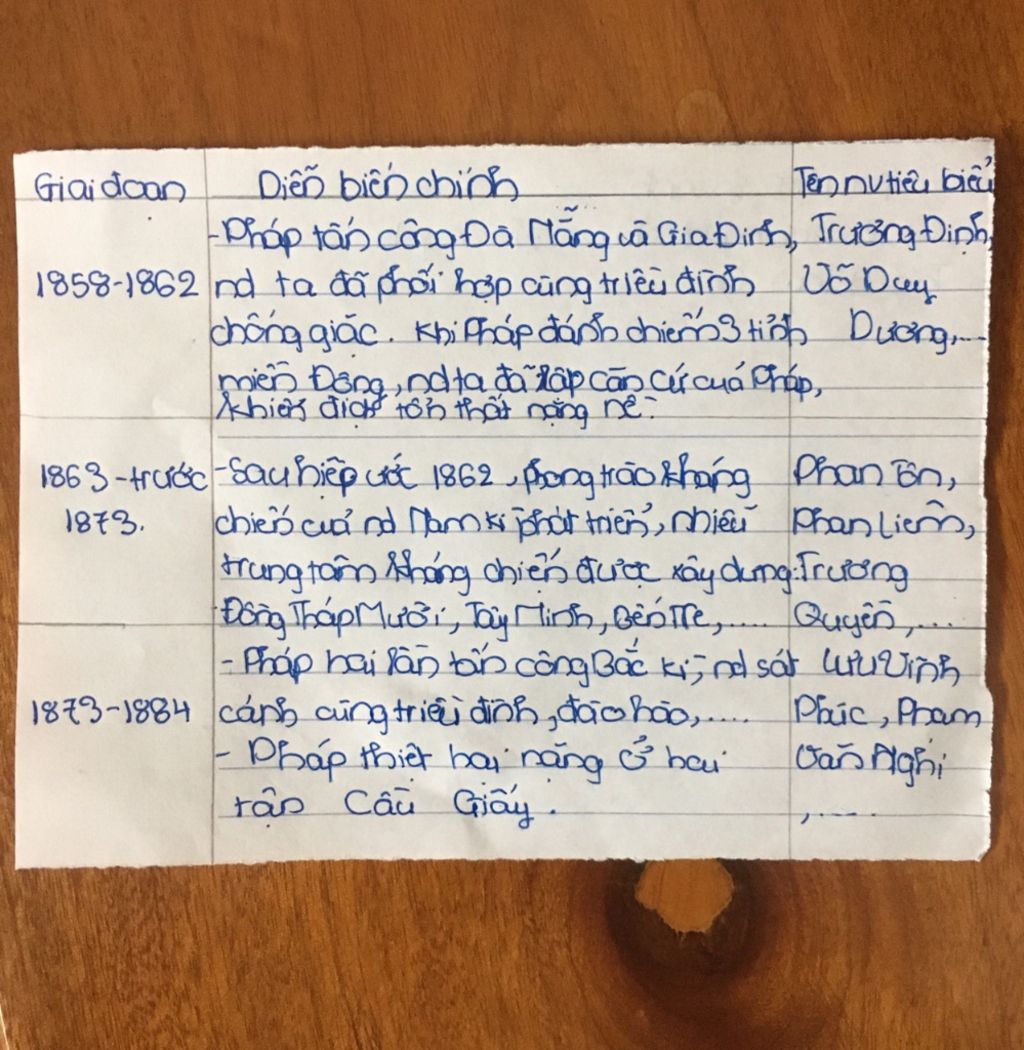 Giai đoạn Diễn biến chính Tên nv tiêu biểu
- Pháp tấn công Đà Nẵng và Gia Định, Trương Định,
1858-1862 nd ta đã phối hợp cùng triều đình Võ Duy
chống giặc. Khi Pháp đánh chiếm 3 tỉnh Dương,...
miền Đông, nd ta đã lập căn cứ của Pháp,
khiến địch tổn thất nặng nề.
1863 - trước - Sau hiệp ước 1862, phong trào kháng Phan Tôn,
1873. chiến của nd Nam kì phát triển, nhiều Phan Liêm,
trung tâm kháng chiến được xây dựng: Trương
Đồng Tháp Mười, Tây Ninh, Bến Tre,.... Quyền,...
- Pháp hai lần tấn công Bắc kì, nd sát Lưu Vĩnh
1873-1884 cánh cùng triều đình, đào hào,.... Phúc, Phạm
- Pháp thiệt hại nặng ở hai Văn Nghị
trận Cầu Giấy. ,....